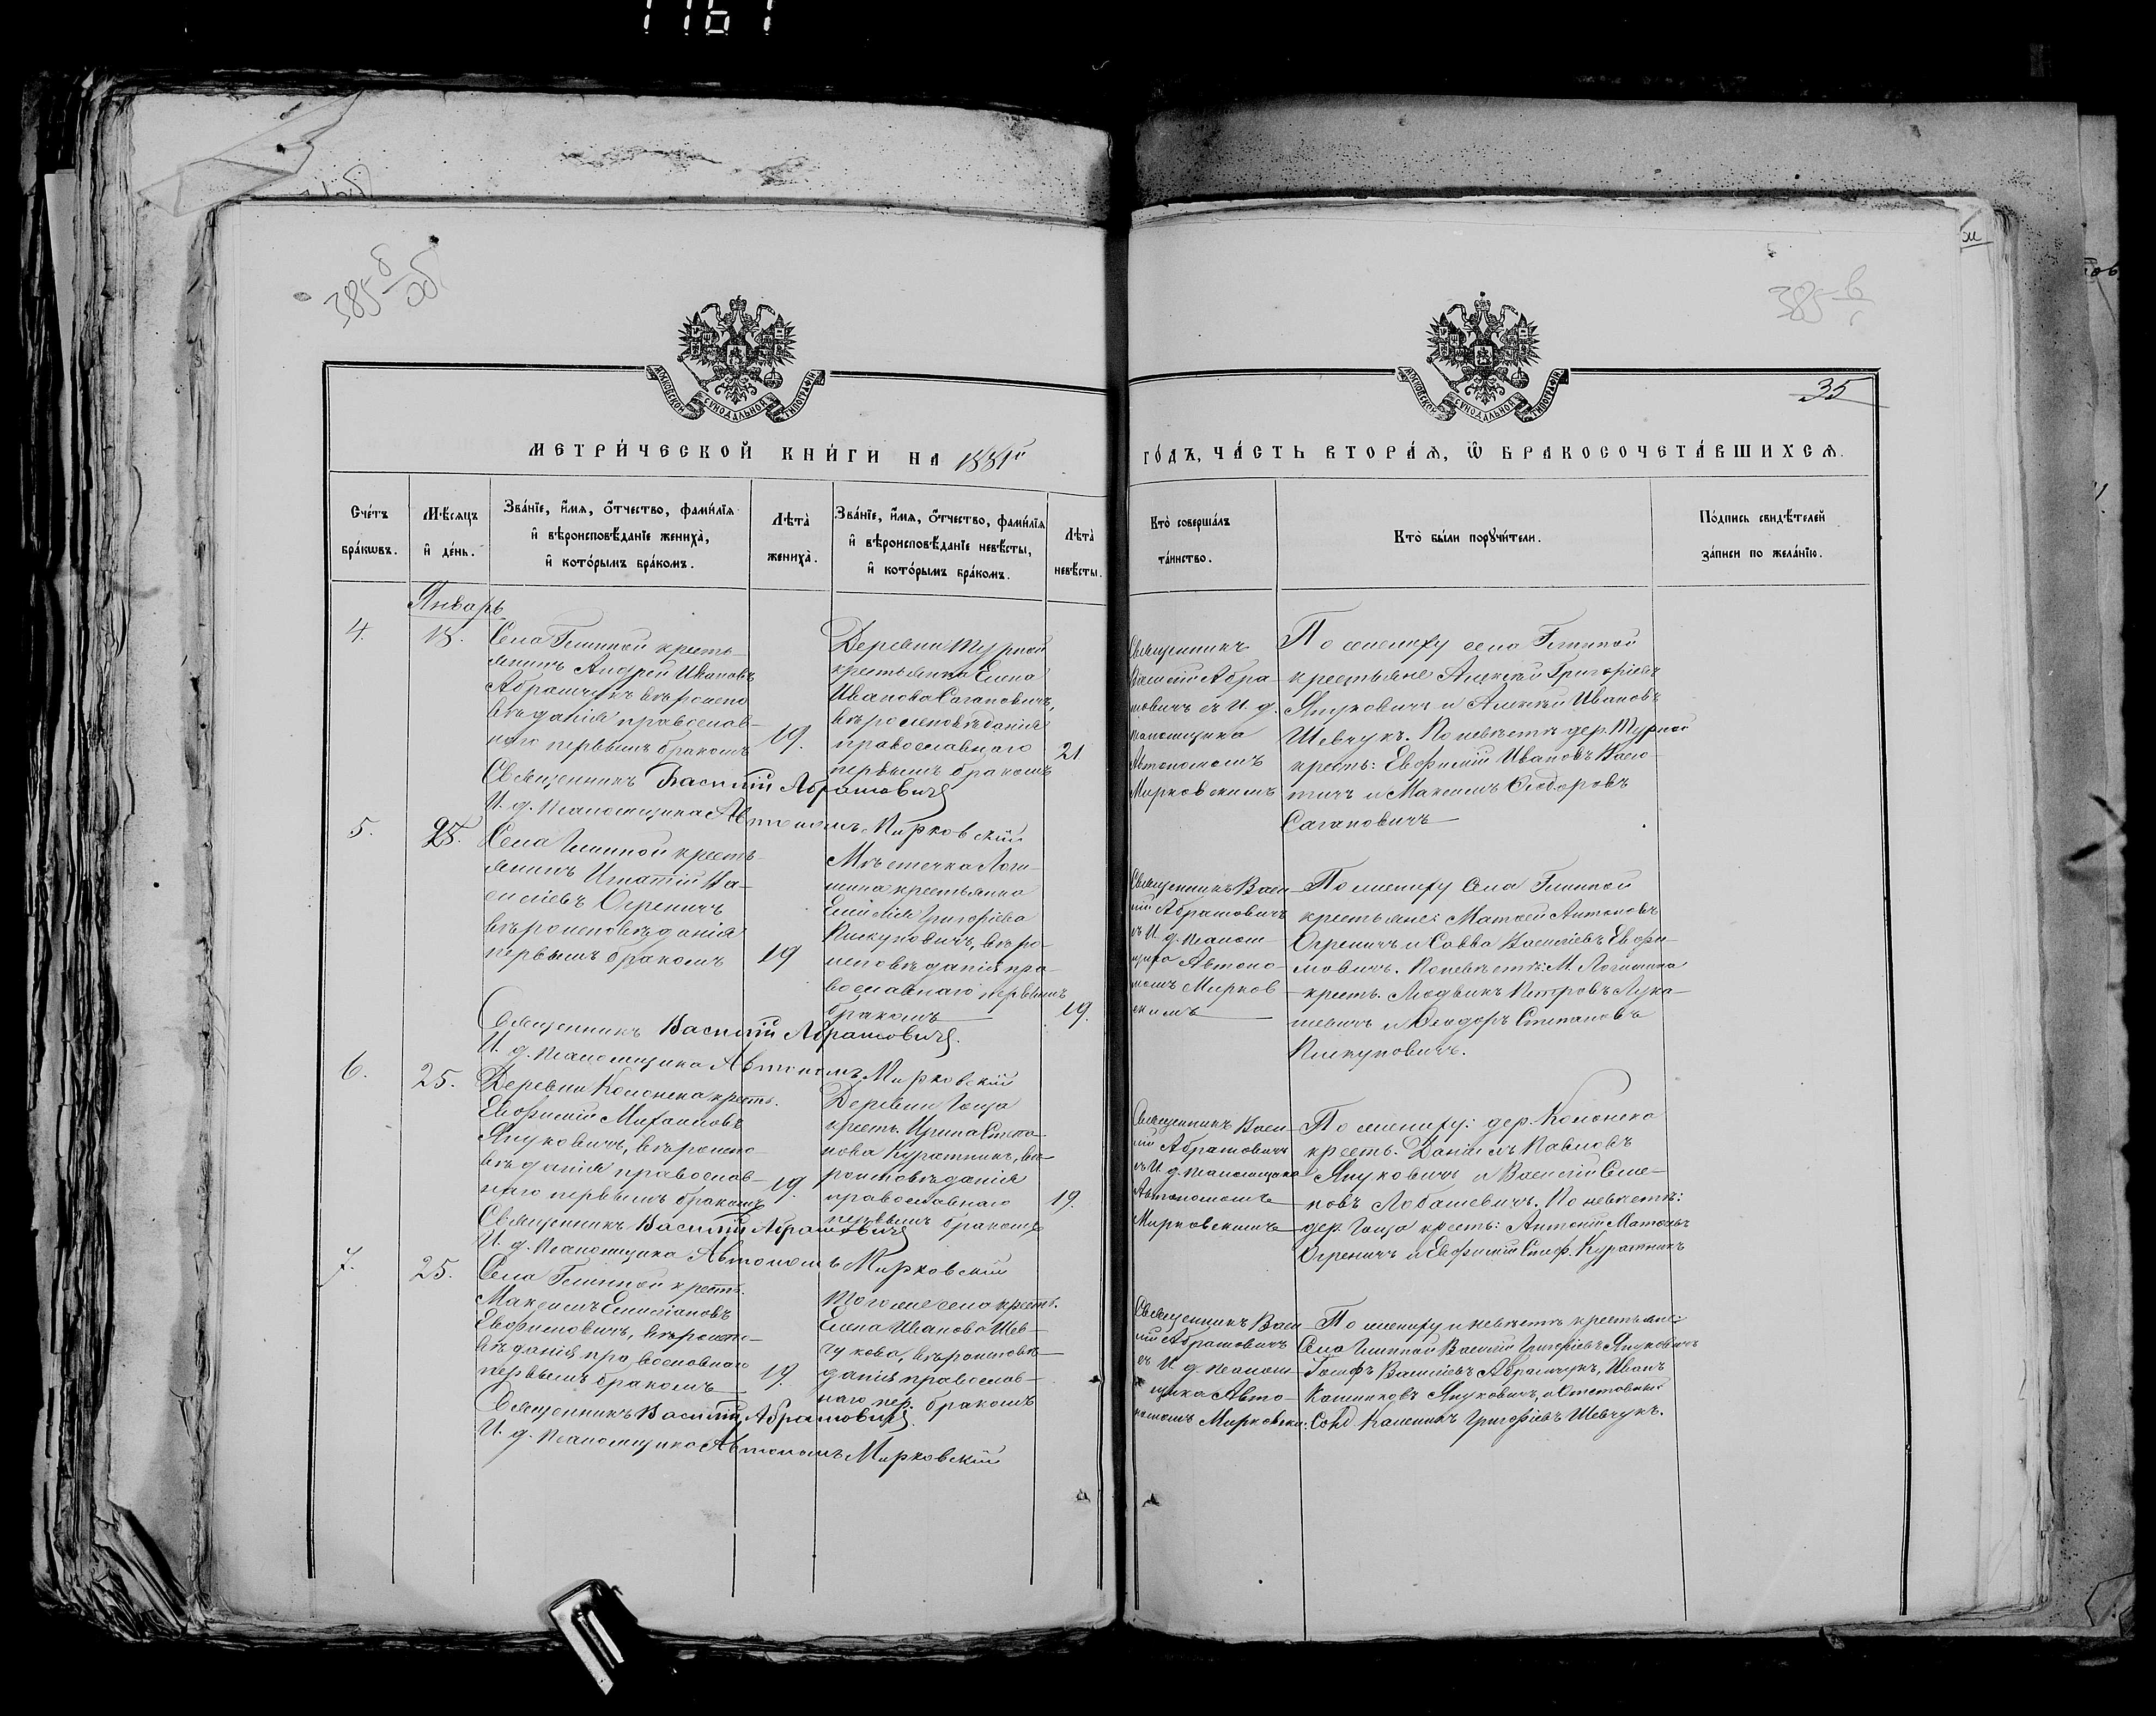 1161
385 б/об
385 в
35
МОСКОВСКОЙ СѴНОДАЛЬНОЙ ТИПОГРАФІИ
МОСКОВСКОЙ СѴНОДАЛЬНОЙ ТИПОГРАФІИ
МЕТРИ́ЧЕСКОЙ КНИ́ГИ НА 1881й
ГО́ДЪ, ЧА́СТЬ ВТОРА́Я, Ѡ҆ БРАКОСОЧЕТА́ВШИХСЯ.
Сче́тъ
бра́кѡвъ.
Мѣ́сяцъ
и҆ де́нь.
Зва́нїе, и҆́мя, ѻ҆́тчество, фами́лїя
и҆ вѣроисповѣ́данїе жениха̀,
и҆ кото́рымъ бра́комъ.
Лѣта̀
жениха̀.
Зва́нїе, и҆́мя, ѻ҆́тчество, фами́лїя
и҆ вѣроисповѣ́данїе невѣ́сты,
и҆ кото́рымъ бра́комъ.
Лѣта̀
невѣ́сты.
Кто̀ соверша́лъ
та́инство.
Кто̀ бы́ли порꙋчи́тели.
По́дпись свидѣ́телей
за́писи по жела́нїю.
Январь
4.
18.
Села Глинной кресть-
янинъ Андрей Ивановъ
Абрамчукъ вѣроиспо
вѣданія православ-
наго первымъ бракомъ
19.
Деревни Турной
крестьянка Елена
Иванова Саганович,
вѣроисповѣданія
православнаго
первымъ бракомъ
21
Священникъ
Василій Абра
мовичъ съ И. д.
псаломщика
Автономомъ
Мирковскимъ
По жениху села Глинной
крестьяне Алексѣй Григоріевъ
Януковичъ и Алексѣй Ивановъ
Шевчукъ. По невѣстѣ дер. Турной
кресть: Евфимій Ивановъ
и Максимъ Ѳеодоровъ
Сагановичъ
Священникъ Василій Абрамовичъ
И. д. псаломщика Автономъ Мирковскій
5.
25.
Села Глинной кресть-
янинъ Игнатій Ва-
силіевъ Огреничъ
вѣроисповѣданія
первымъ бракомъ
19
Мѣстечка Логи-
шина крестьянка
Григоріева
вѣро-
исповѣданія пра-
вославнаго первымъ
бракомъ
19.
Священникъ Васи-
лій Абрамовичъ
съ И. д. псалом-
щика Автоно-
момъ Мирков-
скимъ
По жениху села Глинной
крестьяне: Матѳей Антоновъ
Огреничъ и Савва Василіевъ Евфи-
мовичъ. По невѣстѣ: М. Логишина
кресть. Людвикъ Петровъ Лука-
шевичъ и Ѳеодоръ Степановъ
Священникъ Василій Абрамовичъ.
И. д. псаломщика Автономъ Мирковскій
6.
25.
Деревни Колонска кресть.
Евфимій Михаиловъ
Януковичъ, вѣроиспо-
вѣданія православ-
наго первымъ бракомъ
19.
Деревни Гоща
кресть. Ирина Степа-
нова Куратникъ, вѣ-
роисповѣданія
православнаго
первымъ бракомъ
19.
Священникъ Васи-
лій Абрамовичъ
съ И. д. псаломщика
Автономомъ
Мирковскимъ
По жениху: дер. Колонско
кресть. Даніилъ Павловъ
Януковичъ и Василій Симе-
новъ Лобашевичъ. По невѣстѣ:
дер. Гоща кресть: Антоній Матѳіевъ
Огреничъ и Евфимій Стеф. Куратникъ
Священникъ Василій Абрамовичъ
И. д. псаломщика Автономъ Мирковскій
7.
25.
Села Глинной кресть.
Максимъ Емиліановъ
Евфимовичъ, вѣроиспо-
вѣданія православнаго
первымъ бракомъ
19.
Того же села кресть.
Елена Иванова Шев-
чукова, вѣроисповѣ-
данія православ-
наго пер. бракомъ
Священникъ Васи-
лій Абрамовичъ
съ И. д. псалом-
щика Авто-
номомъ Мирковски:
По жениху и невѣстѣ крестьяне:
Села Глинной Василій Григоріевъ Януковичъ
Іосифъ Василіевъ Абрамчукъ, Иванъ
Януковичъ, и Отставный
Солд. Григоріевъ Шевчукъ.
Священникъ Василій Абрамовичъ.
И. д. псаломщика Автономъ Мирковскій